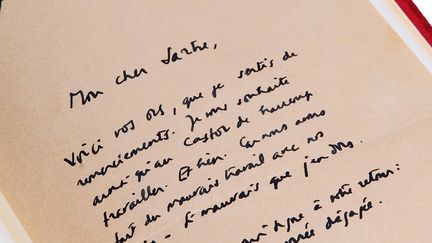 Mon cher Sartre,
Voici vos ors, que je sertis de
remerciements. Je vous souhaite
ainsi qu'au Castor de beaucoup
travailler. Et bien. Car nous avons
fait du mauvais travail avec nos
mauvais que j'en dors.
signe à notre retour:
dégagée.